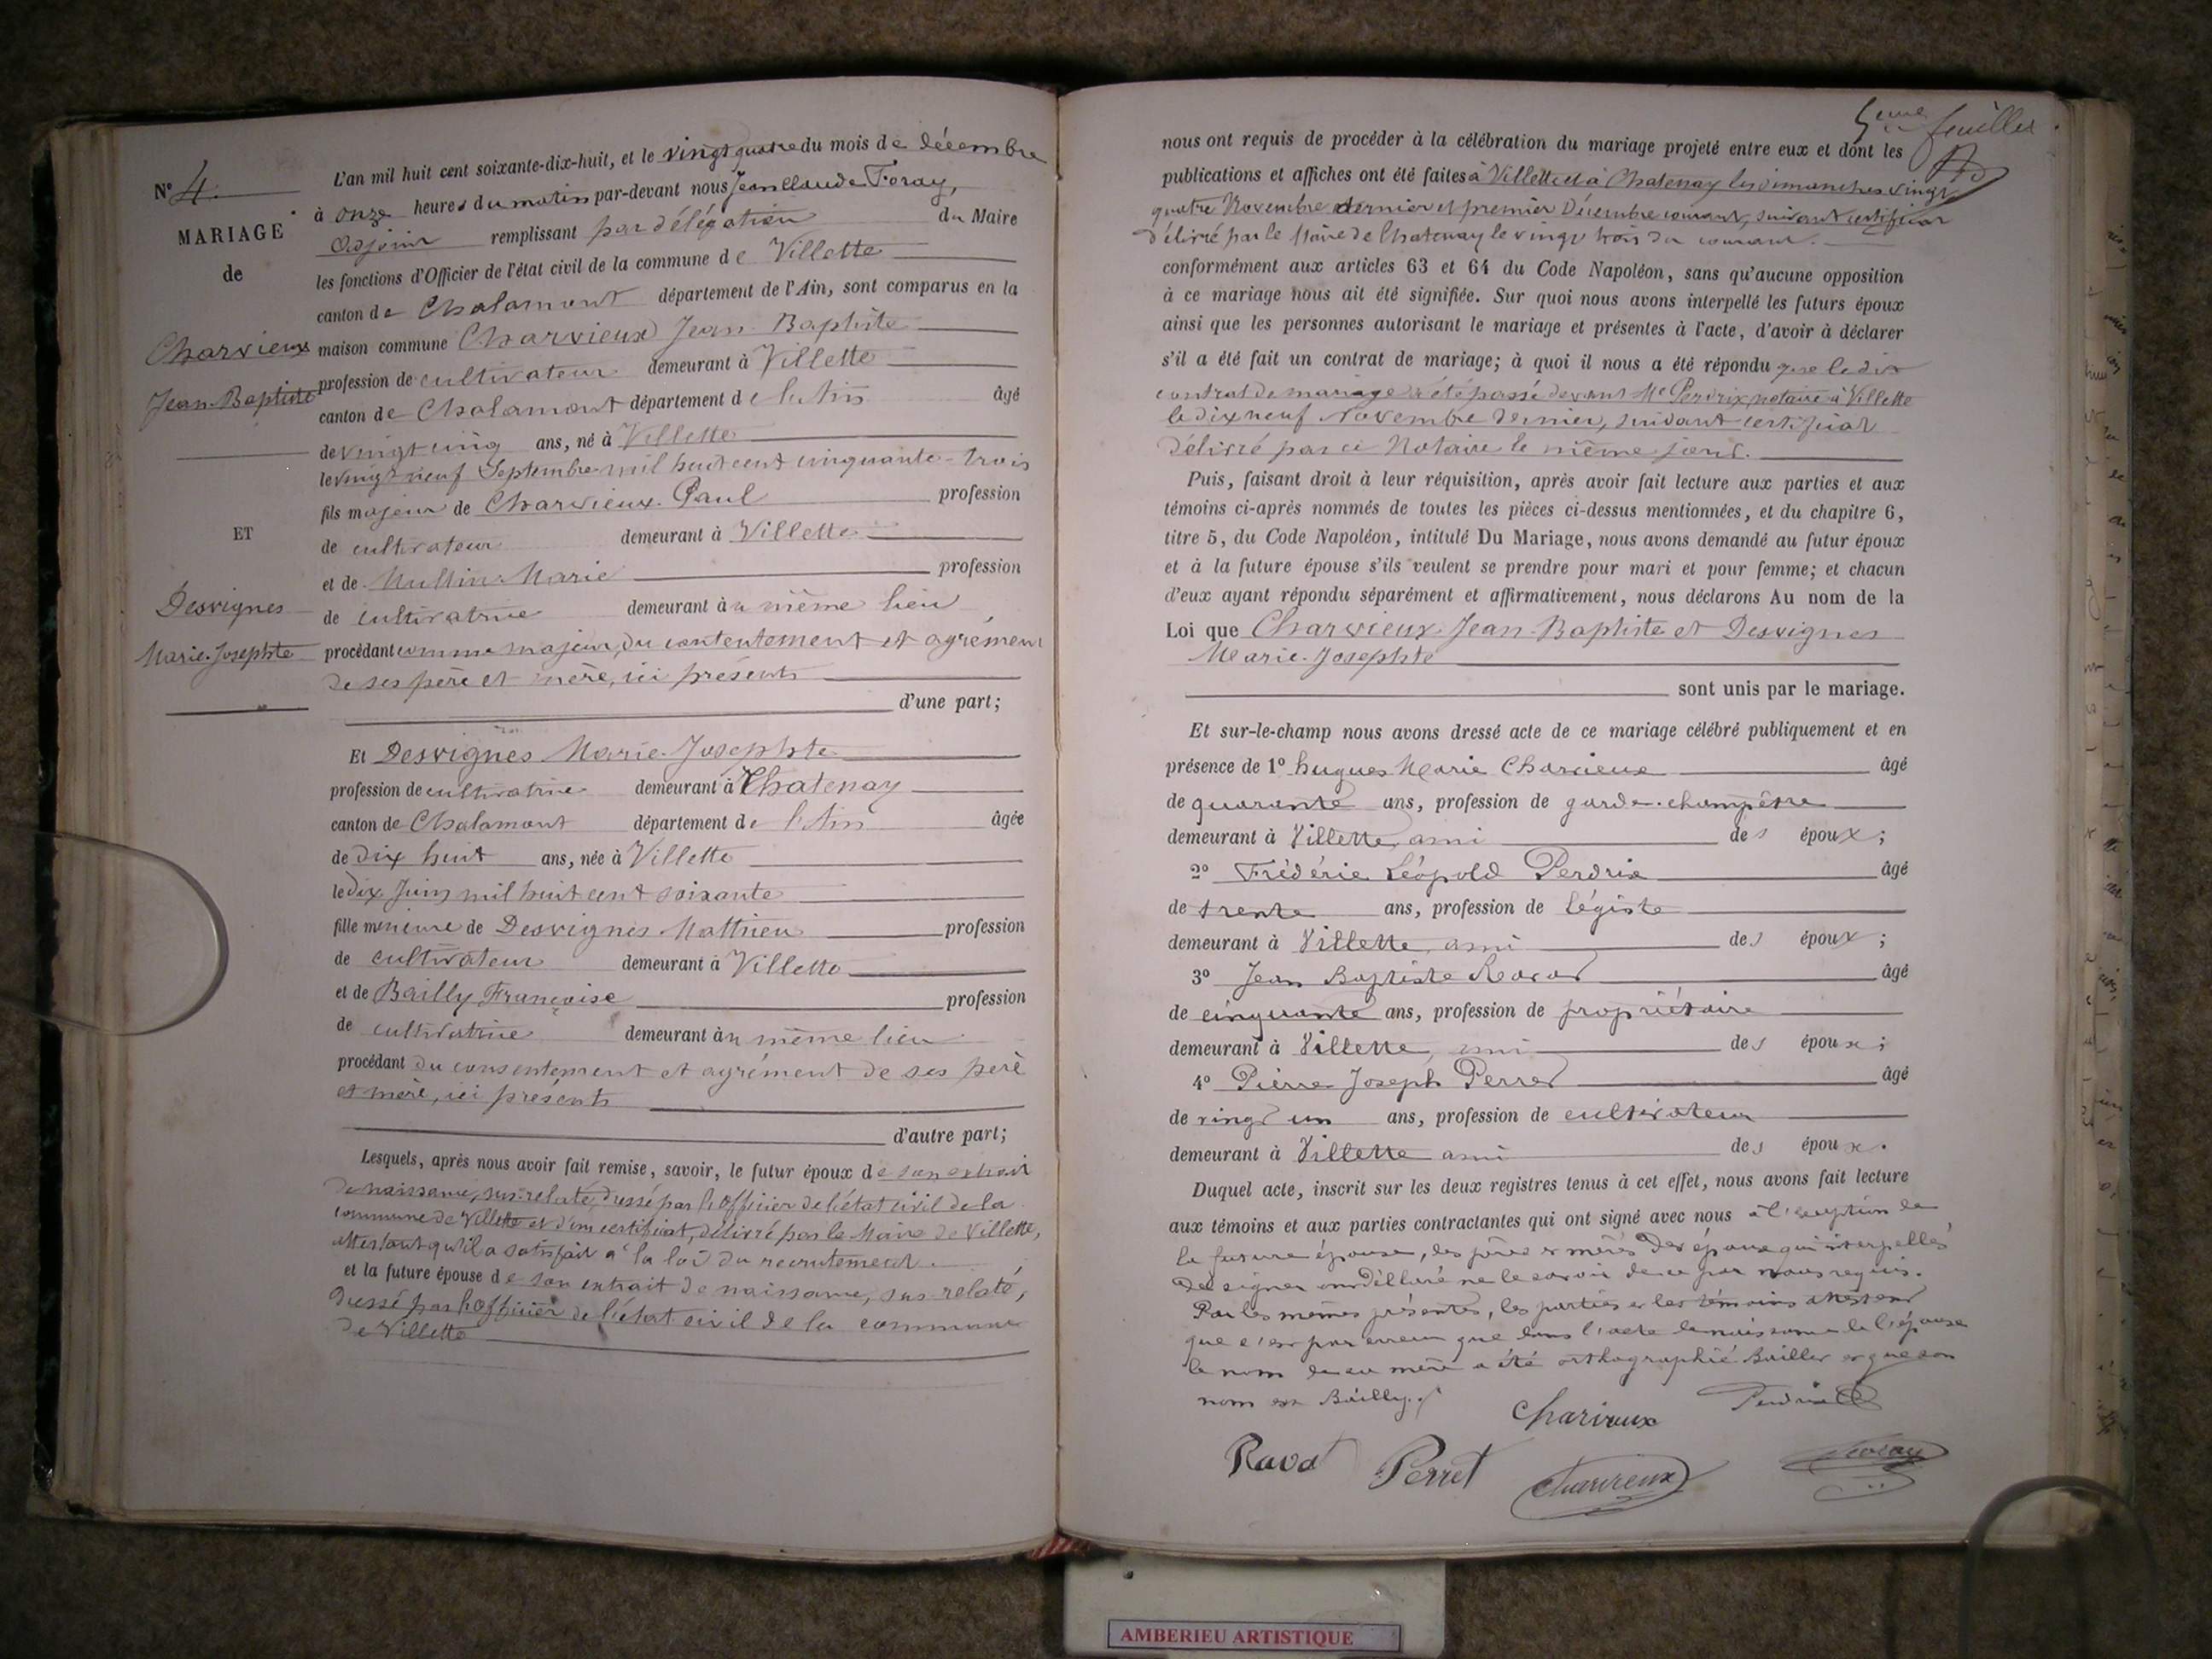 N° 4.
MARIAGE
de
Charvieux
Jean-Baptiste
ET
Desvignes
Marie-Josephte
L'an mil huit cent soixante-dix-huit, et le vingt quatre du mois de décembre
à onze heures du matin par-devant nous Jean Claude Foray,
Adjoint remplissant par délégation du Maire
les fonctions d'Officier de l'état civil de la commune de Villette
canton de Chalamont département de l'Ain, sont comparus en la
maison commune Charvieux Jean-Baptiste
profession de cultivateur demeurant à Villette
canton de Chalamont département de l'Ain âgé
de vingt cinq ans, né à Villette
le vingt neuf Septembre mil huit cent cinquante-trois
fils majeur de Charvieux Paul profession
de cultivateur demeurant à Villette
et de Marie profession
de cultivatrice demeurant au même lieu
procédant comme majeur, du contentement et agrément
de ses père et mère, ici présents
d'une part;
Et Desvignes Marie-Josephte
profession de cultivatrice demeurant à Chatenay
canton de Chalamont département de l'Ain âgée
de dix huit ans, née à Villette
le dix Juin mil huit cent soixante
fille mineure de Desvignes Mathieu profession
de cultivateur demeurant à Villette
et de Bailly Françoise profession
de cultivatrice demeurant au même lieu
procédant du consentement et agrément de ses père
et mère, ici présents
d'autre part;
Lesquels, après nous avoir fait remise, savoir, le futur époux de son extrait
de naissance, sus-relaté, dressé par l'Officier de l'état civil de la
commune de Villette et d'un certificat, délivré par le Maire de Villette,
attestant qu'il a satisfait à la loi du recrutement.
et la future épouse de son extrait de naissance, sus-relaté,
dressé par l'Officier de l'état civil de la commune
de Villette
5eme feuillet.
nous ont requis de procéder à la célébration du mariage projeté entre eux et dont les
publications et affiches ont été faites à Villette et à Chatenay les dimanches vingt
quatre Novembre dernier et premier Décembre courant, suivant certificat
délivré par le Maire de Chatenay le vingt trois du courant.
conformément aux articles 63 et 64 du Code Napoléon, sans qu'aucune opposition
à ce mariage nous ait été signifiée. Sur quoi nous avons interpellé les futurs époux
ainsi que les personnes autorisant le mariage et présentes à l'acte, d'avoir à déclarer
s'il a été fait un contrat de mariage; à quoi il nous a été répondu que le dit
contrat de mariage a été passé devant Me Perdrix, notaire à Villette
le dix neuf Novembre dernier, suivant certificat
délivré par ce Notaire le même jour.
Puis, faisant droit à leur réquisition, après avoir fait lecture aux parties et aux
témoins ci-après nommés de toutes les pièces ci-dessus mentionnées, et du chapitre 6,
titre 5, du Code Napoléon, intitulé Du Mariage, nous avons demandé au futur époux
et à la future épouse s'ils veulent se prendre pour mari et pour femme; et chacun
d'eux ayant répondu séparément et affirmativement, nous déclarons Au nom de la
Loi que Charvieux Jean-Baptiste et Desvignes
Marie-Josephte
sont unis par le mariage.
Et sur-le-champ nous avons dressé acte de ce mariage célébré publiquement et en
présence de 1° hugues Marie Charvieux âgé
de quarante ans, profession de garde-champêtre
demeurant à Villette, ami des époux;
2° Frédéric Léopold Perdrix âgé
de trente ans, profession de légiste
demeurant à Villette, ami des époux;
3° Jean Baptiste Ravat âgé
de cinquante ans, profession de propriétaire
demeurant à Villette, ami des époux;
4° Pierre Joseph Perret âgé
de vingt un ans, profession de cultivateur
demeurant à Villette ami des époux.
Duquel acte, inscrit sur les deux registres tenus à cet effet, nous avons fait lecture
aux témoins et aux parties contractantes qui ont signé avec nous à l'exception de
la future épouse, des pères et mères des époux qui interpellés
de signer ont déclaré ne le savoir de ce par nous requis.
Par les mêmes présentes, les parties et les témoins attestent
que c'est par erreur que dans l'acte de naissance de l'épouse
le nom de sa mère a été orthographié Bailler et que son
nom est Bailly.
Charvieux Perdrix
Ravat Perret Charvieux Foray
AMBERIEU ARTISTIQUE